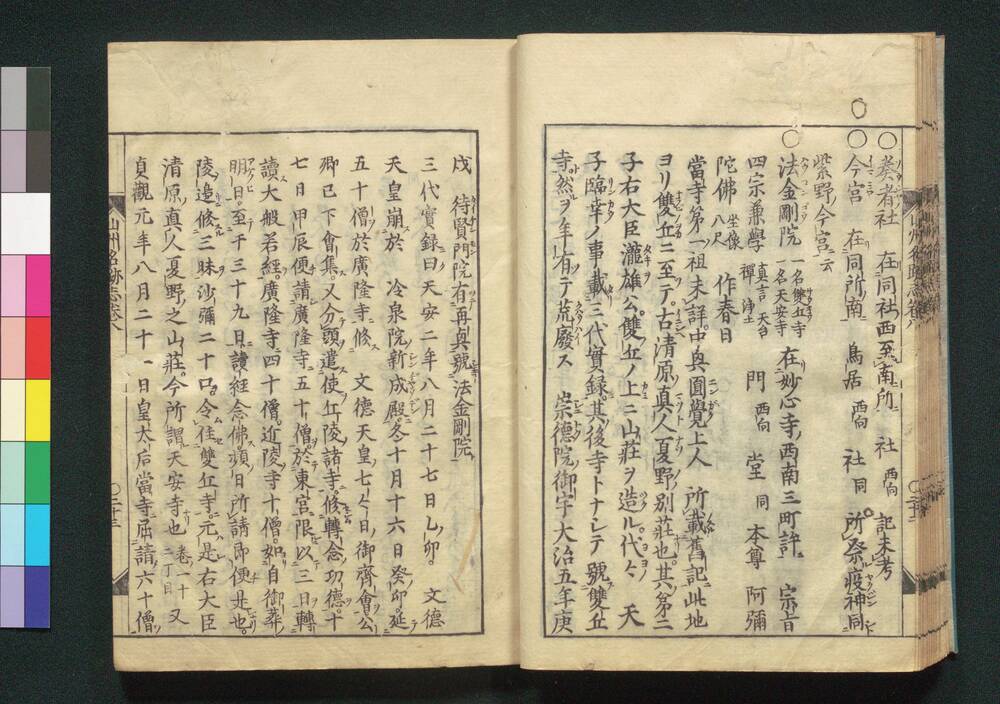 ○葵者社 在同社西至南所 社 西向 記未考
○今宮 在同所南 鳥居 西向 社同 所祭疫神同
紫野今宮云
○法金剛院 一名雙丘寺 一名天安寺 在妙心寺西南三町許 宗旨
四宗兼學 真言 天台 禪 浄土 門 西向 堂 同 本尊 阿彌
陀佛 坐像 八尺 作春日
當寺第一祖未詳中興圓覺上人 所載舊記此地
ヨリ雙丘ニ至テ古清原真人夏野別莊也其第二
子右大臣瀧雄公雙丘ノ上ニ山莊ヲ造ル代々 天
子臨幸ノ事載三代實録其後寺トナシテ號雙丘
寺然ヲ年有テ荒廢ス 崇德院御宇大治五年庚
戌 待賢門院有再興號法金剛院
三代實録曰天安二年八月二十七日乙卯 文德
天皇崩於 冷泉院新成殿冬十月十六日癸卯延
五十僧於廣隆寺修 文德天皇七々日御齊會公
卿已下會集又分頭遣使丘陵諸寺修轉念功德十
七日甲辰便請廣隆寺五十僧於東宮限以三日轉
讀大般若經廣隆寺四十僧近陵寺十僧如自御葬
明日至于三十九日讀經念佛須日所請即便是也
陵追修三昧沙彌二十口令住雙丘寺元是右大臣
清原真人夏野之山莊今所謂天安寺也 卷一十 二丁目 又
貞觀元年八月二十一日皇太后當寺屈請六十僧
山州名跡志卷八
○二十三